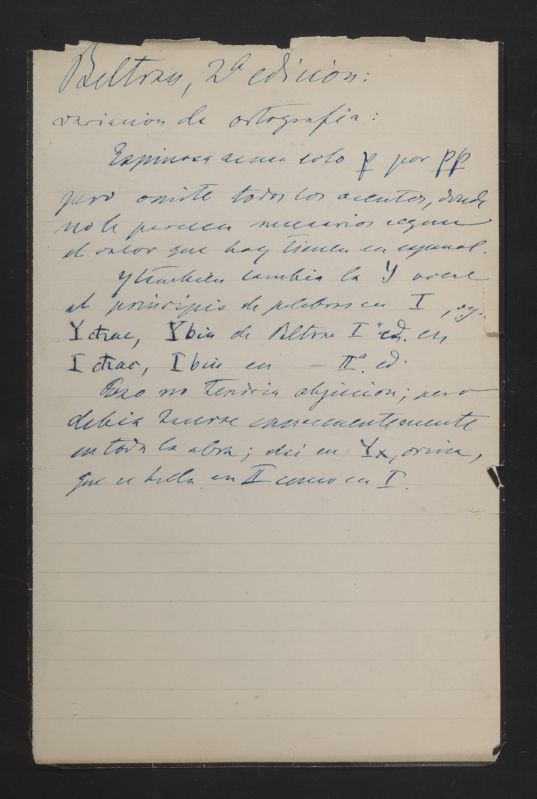 Beltran, 2a edicion:
variacion de ortografia:
Espinosa usa solo p por pp
pero omite todos los acentos, donde
no le parecen necesarios segun
el valor que hoy tienen en español.
Y tambien cambia la Y
al principio de palabras en I, eg.
Yctrac, Ybin de Beltran Ia ed. en
Ictrac, Ibin en — IIa ed.
Eso no tendria objecion; pero
debia hacerse consecuentemente
en toda la obra; asi en Yx, orina,
que se halla en II como en I.